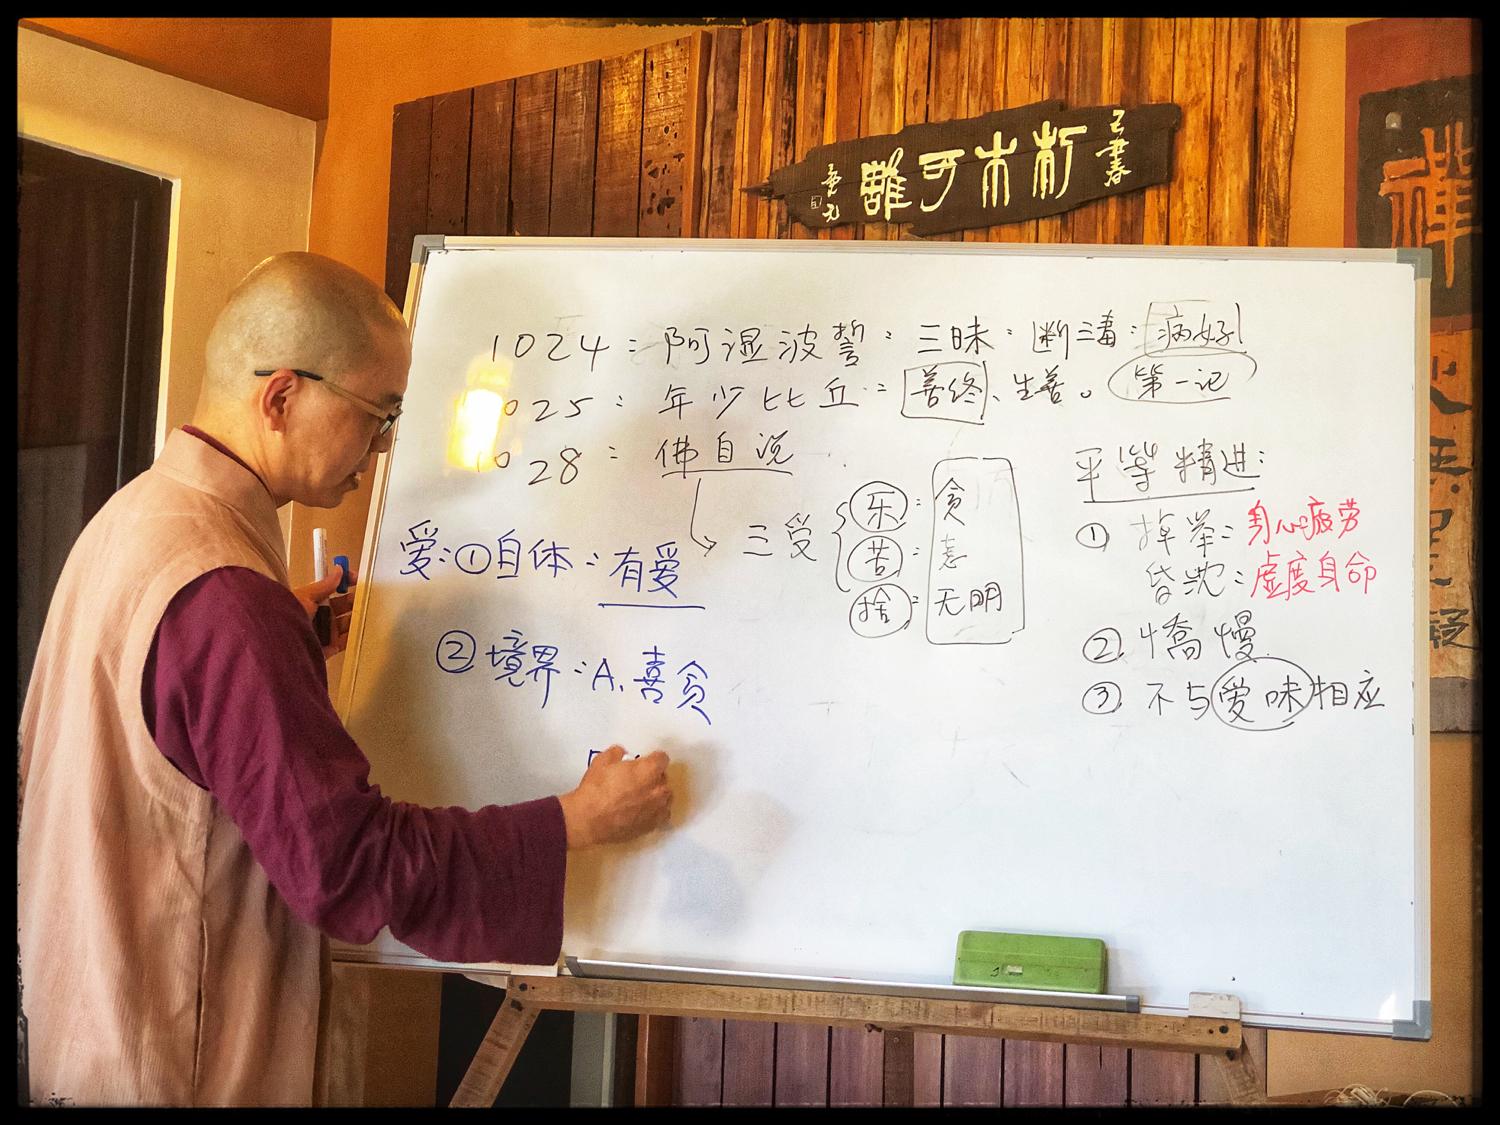 己丑春
朽木可雕
禅
1024：阿湿波誓：三昧：断三毒：病好
1025：年少比丘：善终、生善。第一记
1028：佛自说
三受
乐：贪
苦：恚
捨：无明
爱：①自体：有爱
②境界：A、喜贪
平等精进：
① 掉举：身心疲劳
昏沈：虚度身命
② 憍慢
③ 不与爱味相应